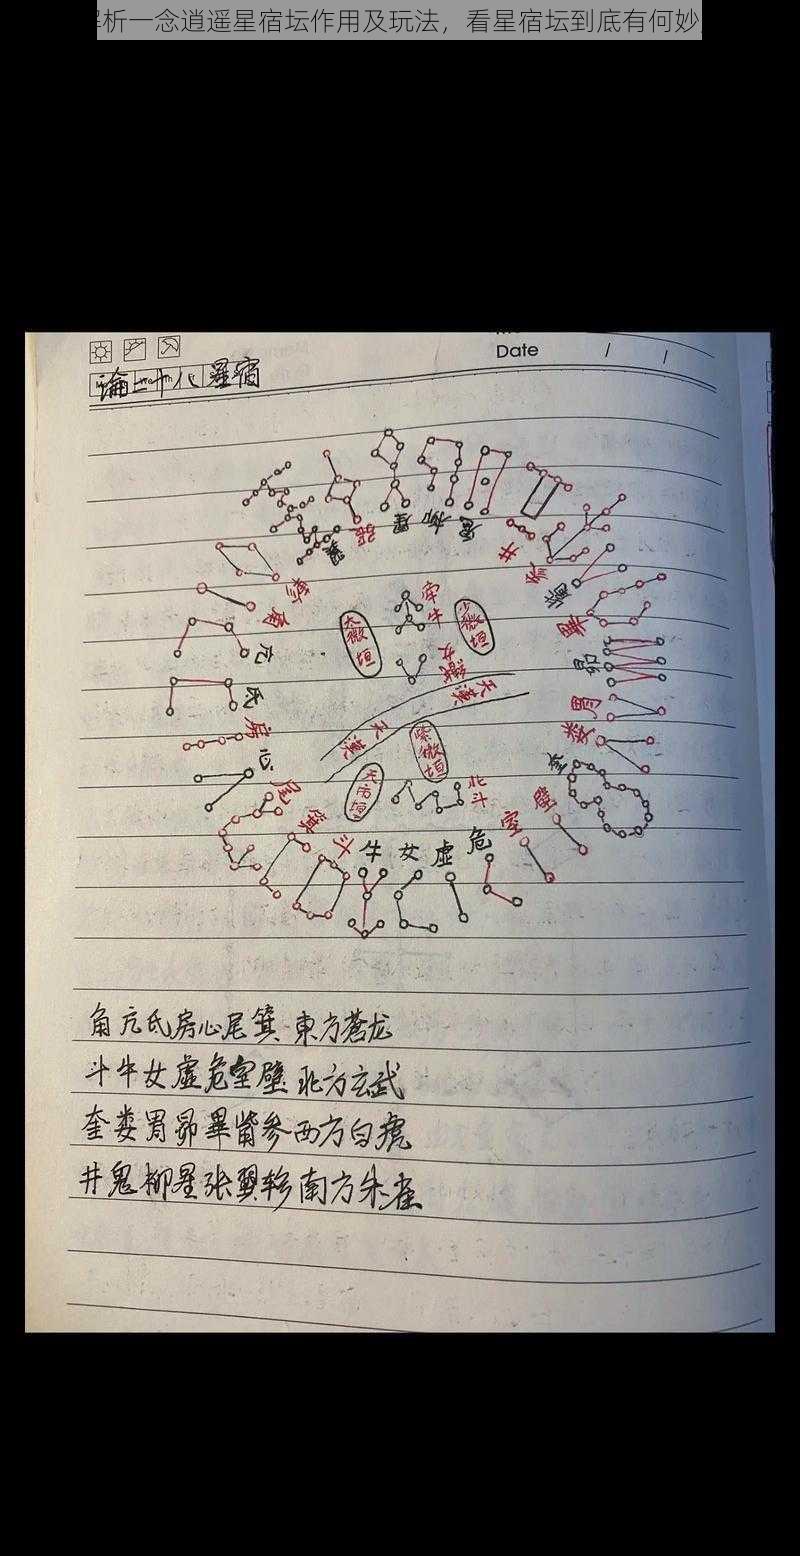 解析一念逍遥星宿坛作用及玩法，看星宿坛到底有何妙
Date / /
論二十八星宿
翼 張 星 柳 鬼 井 参
軫 角 亢 氐 房 心 尾 箕
斗 牛 女 虚 危 室 壁
奎 娄 胃 昴 畢 觜
牵牛
太微垣
少微垣
織女
天漢
天漢
紫微垣
天市垣
北斗
角亢氐房心尾箕 東方蒼龙
斗牛女虚危室壁 北方玄武
奎娄胃昴畢觜参西方白虎
井鬼柳星张翼轸南方朱雀